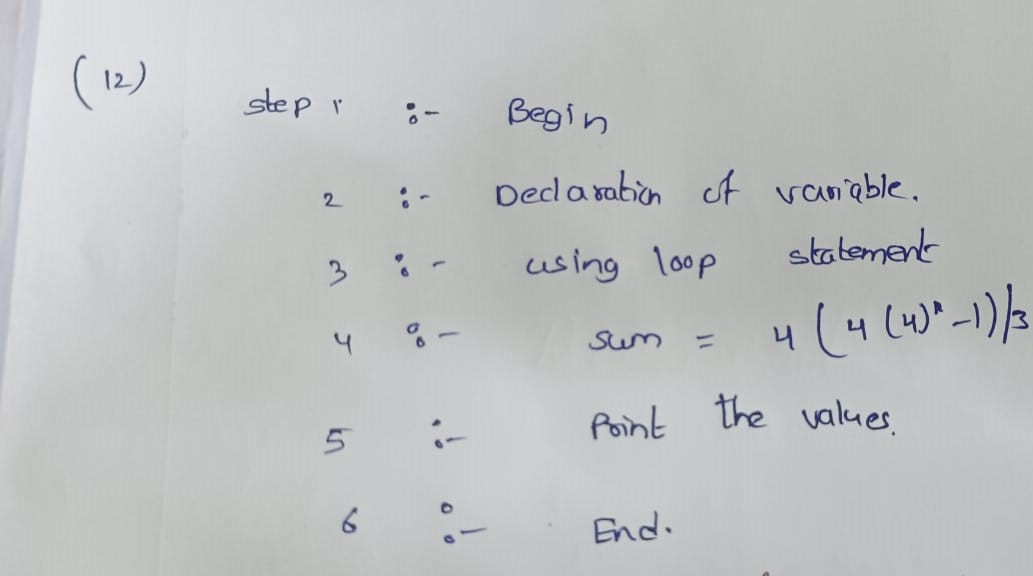 (12)
step 1 :- Begin
2 :- Declaration of variable.
3 :- using loop statement
4 :- sum = 4 (4 (4)^n -1))/3
5 :- Print the values.
6 :- End.